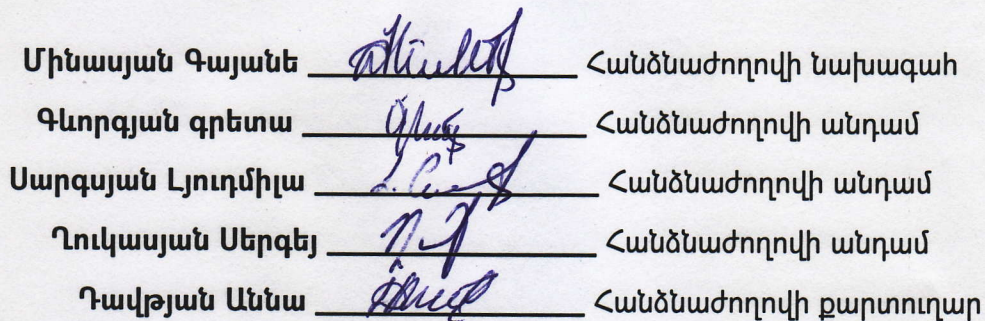 Մինասյան Գայանե Հանձնաժողովի նախագահ
Գևորգյան գրետա Հանձնաժողովի անդամ
Սարգսյան Լյուդմիլա Հանձնաժողովի անդամ
Ղուկասյան Սերգեյ Հանձնաժողովի անդամ
Դավթյան Աննա Հանձնաժողովի քարտուղար